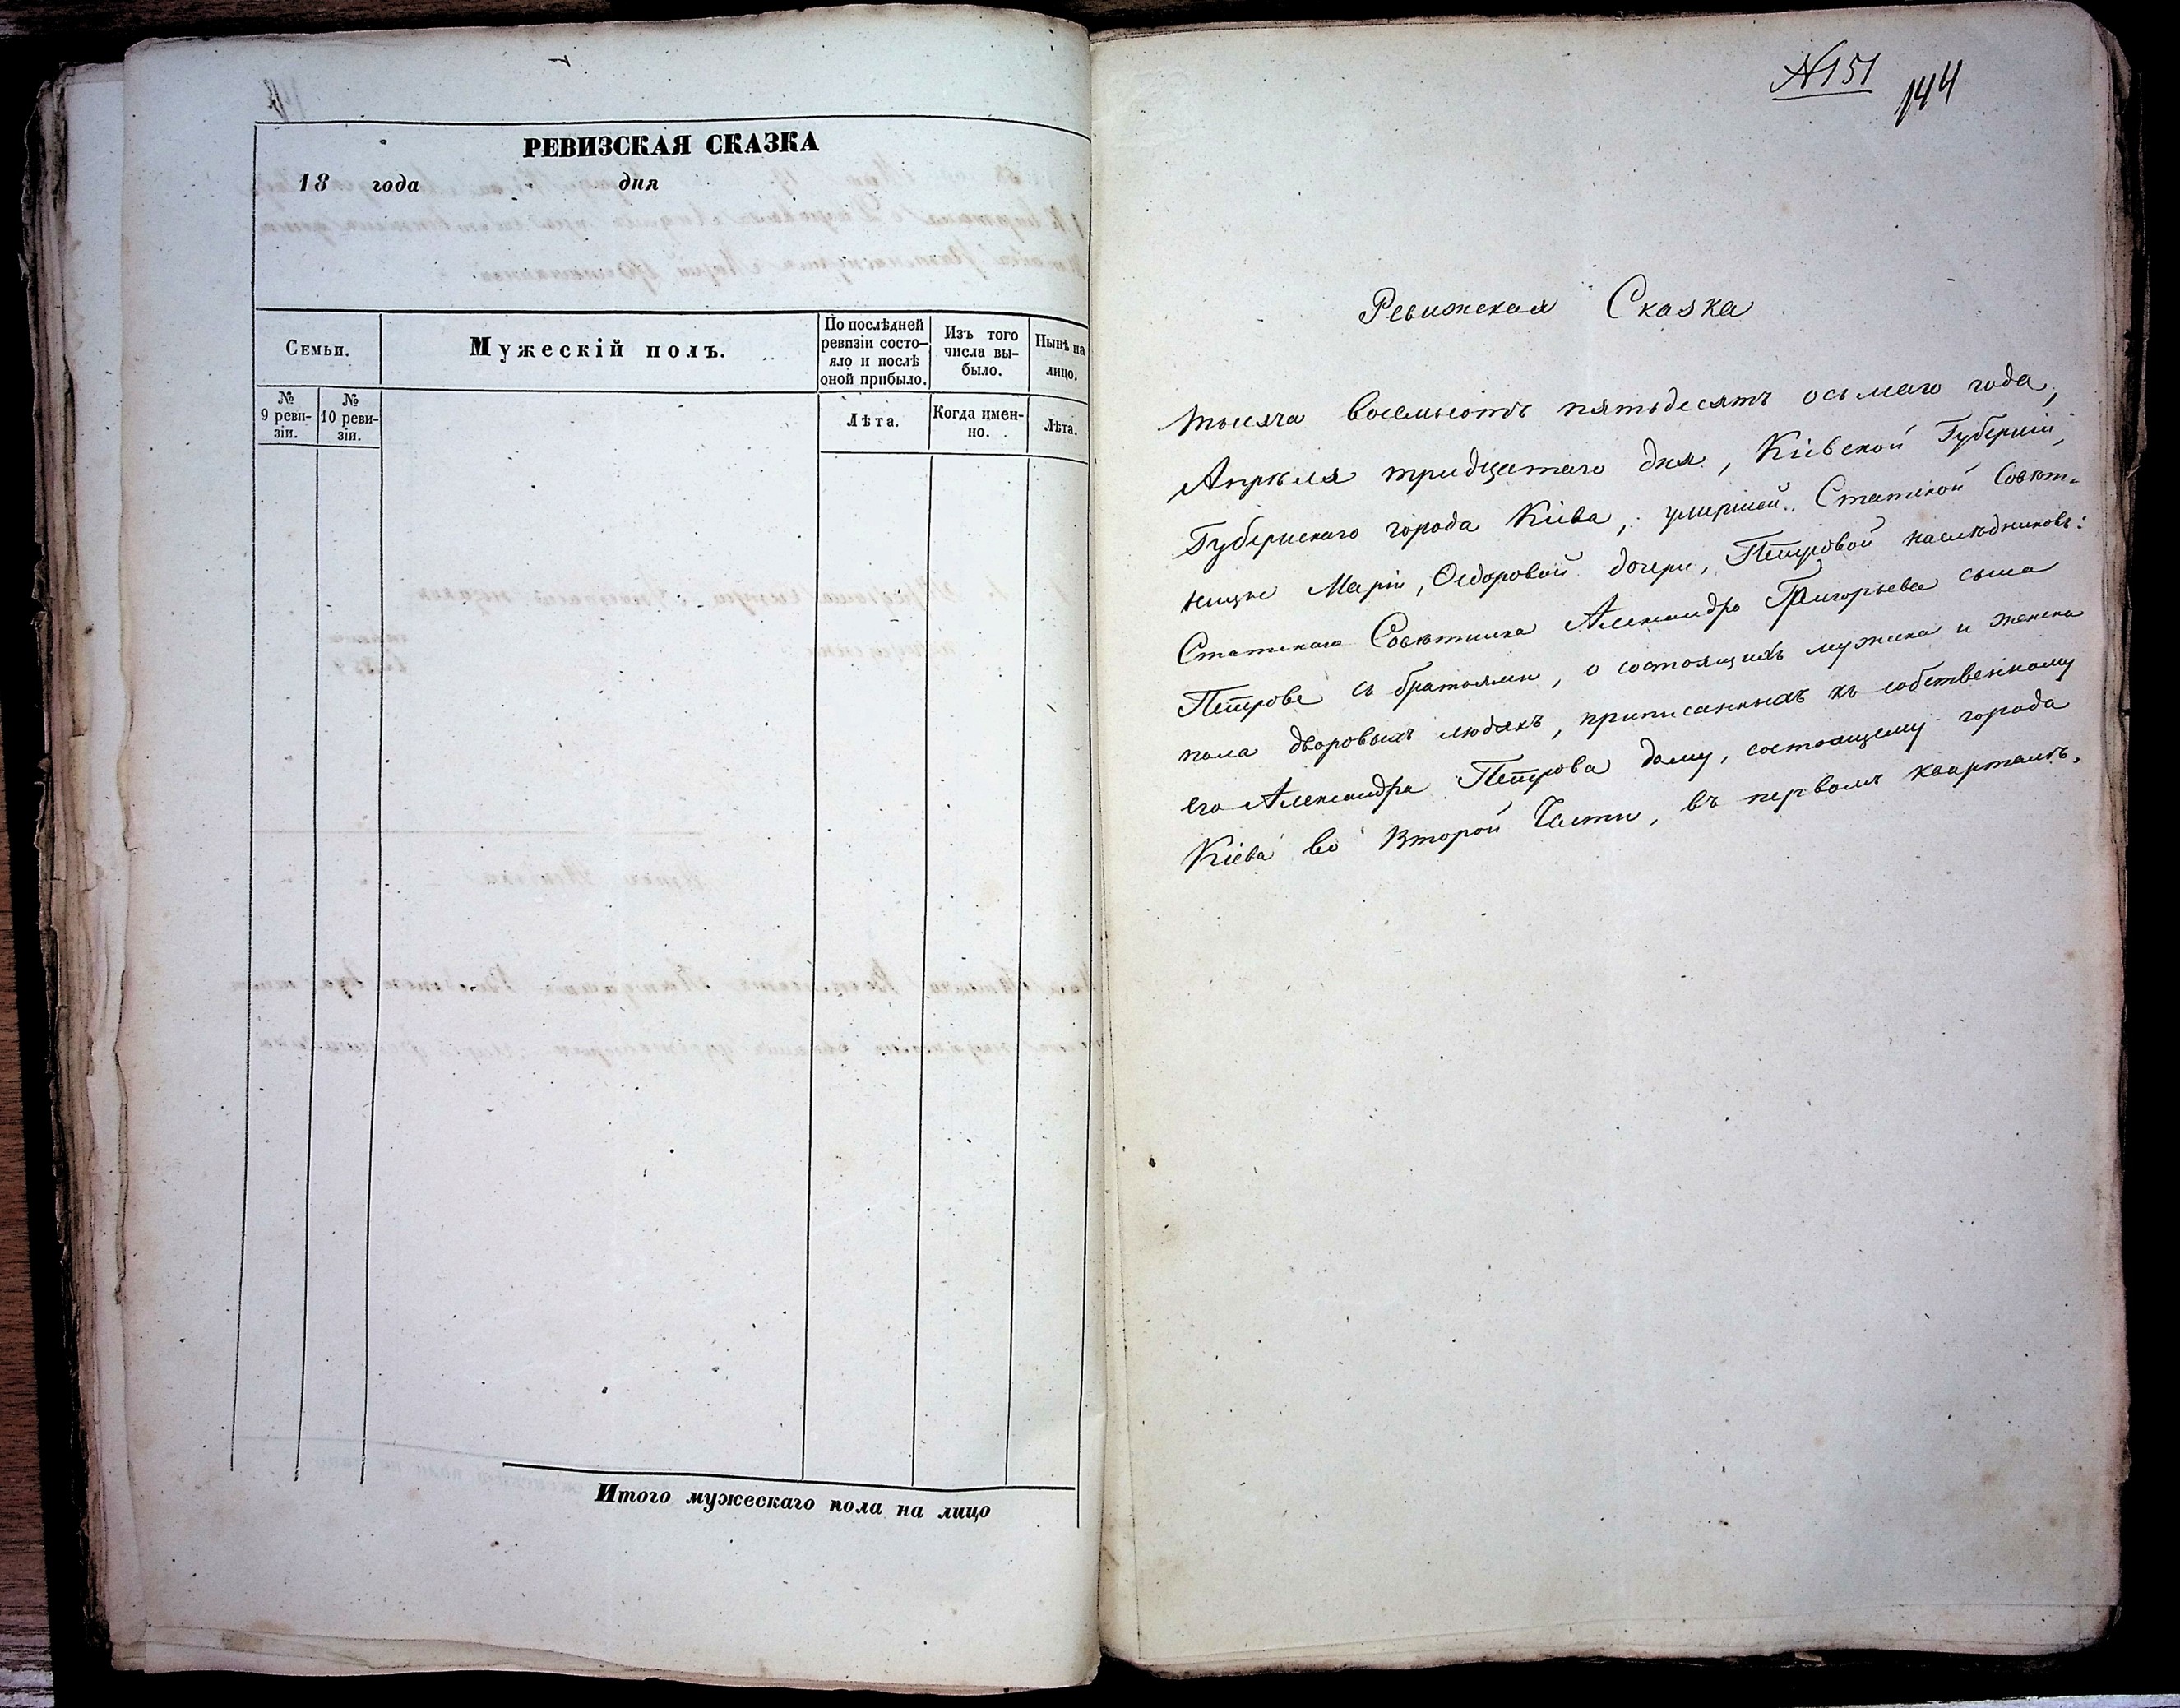 РЕВИЗСКАЯ СКАЗКА
18 года дня
Семьи.
Мужескій полъ.
По послѣдней
ревизіи состо-
яло и послѣ
оной прибыло.
Изъ того
числа вы-
было.
Нынѣ на
лицо.
№
9 реви-
зіи.
№
10 реви-
зіи.
Лѣта.
Когда имен-
но.
Лѣта.
Итого мужескаго пола на лицо
№151
144
Ревижская Сказка
тысяча восемьсотъ пятьдесятъ осьмаго года,
Апрѣля тридцатаго дня, Кіевской Губерніи,
Губернскаго города Кіева, умершей Статской Совѣт-
ницы Маріи, Ѳедоровой дочери, Петровой наслѣдниковъ:
Статскаго Совѣтника Александра Григорьева сына
Петрова съ братьями, о состоящихъ мужска и женска
пола дворовыхъ людяхъ, приписанныхъ къ собственному
его Александра Петрова дому, состоящему города
Кіева во Второй Части, въ первомъ кварталѣ.